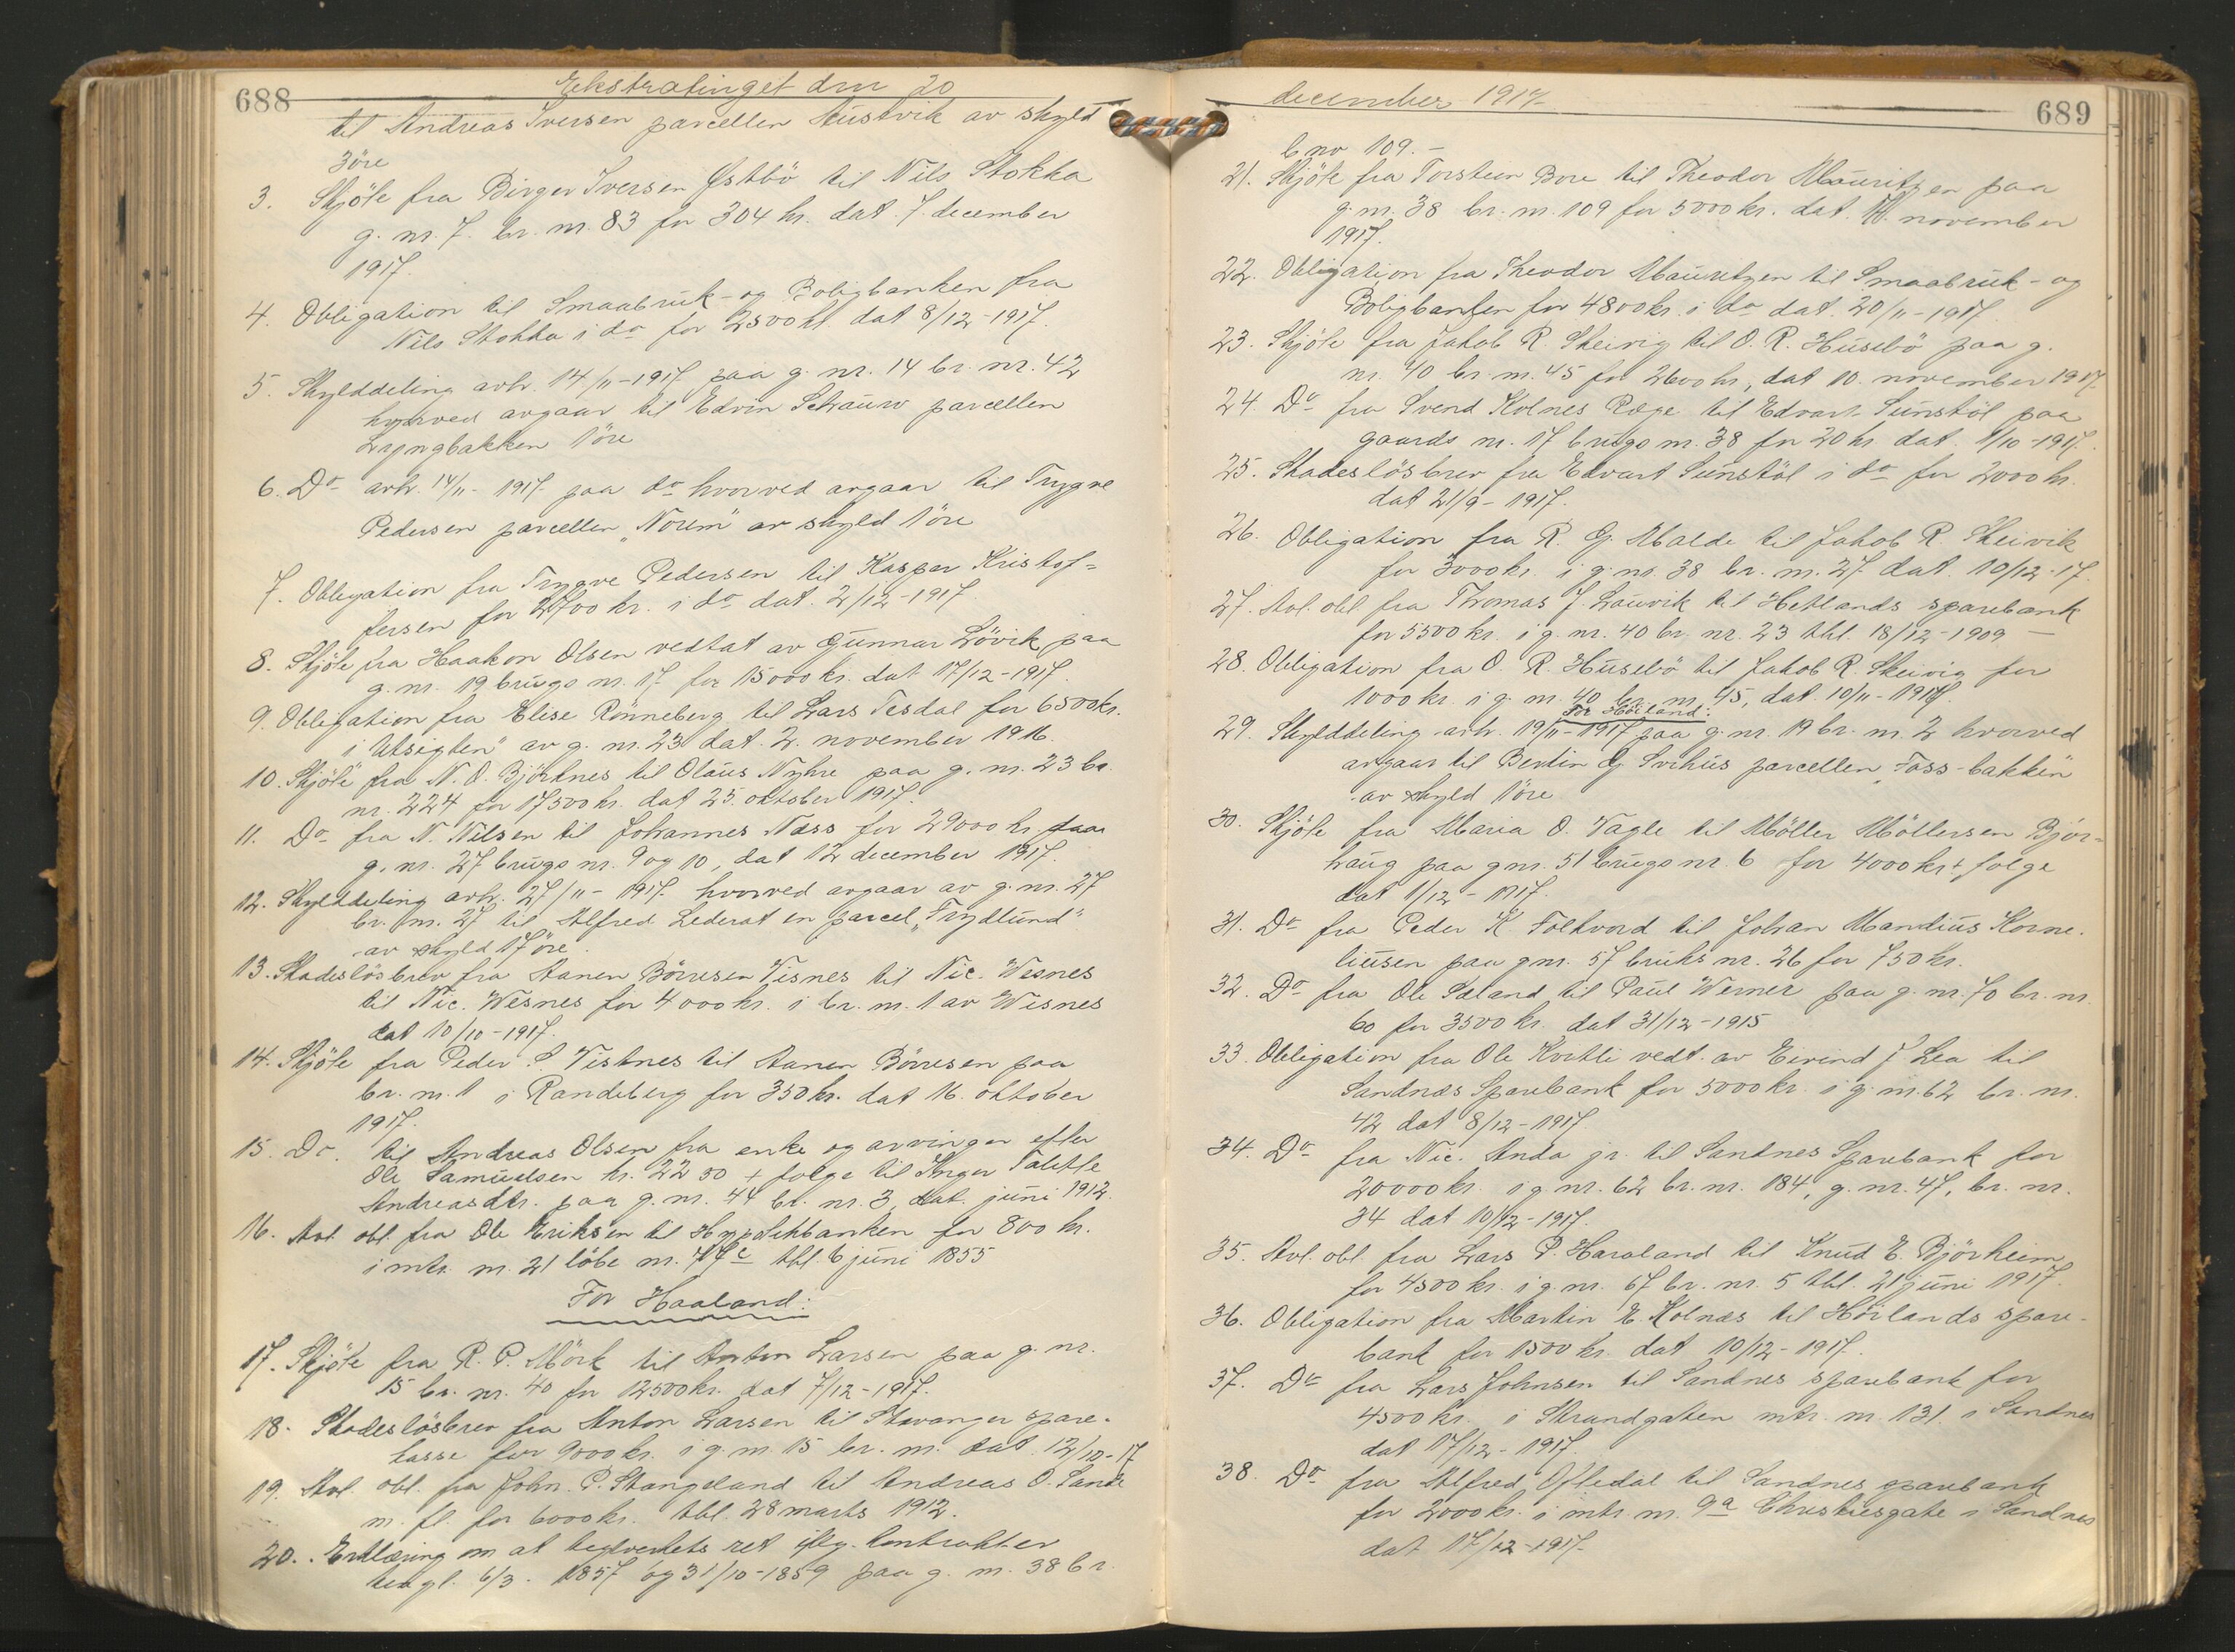 688
Ekstratinget den 20
til Andreas Iversen parcellen Austvik av skyld
3 öre
3. Skjöte fra Birger Iversen Østbö til Nils Stokka
g. nr. 7. br. nr. 83 for 304 kr. dat. 7. december
1917.
4. Obligation til Smaabruk- og Boligbanken fra
Nils Stokka i do for 2500 kr. dat 8/12-1917.
5. Skylddeling avh. 14/11-1917 paa g. nr. 14 br. nr. 42
hvorved avgaar til Edvin Schauw parcellen
Lyngbakken 1 öre
6. Do avh. 14/11-1917 paa do hvorved avgaar til Trygve
Pedersen parcellen "Norem" av skyld 1 öre
7. Obligation fra Trygve Pedersen til Kasper Kristof=
fersen for 2700 kr. i do dat. 2/12-1917.
8. Skjöte fra Haakon Olsen vedtat av Gunnar Lövik paa
g. nr. 19 brugs nr. 17 for 15000 kr. dat 17/12-1917.
9. Obligation fra Elise Rönneberg til Lars Tesdal for 6500 kr.
i "Utsigten" av g. nr. 23 dat. 2. november 1916.
10. Skjöte fra N. O. Björknes til Olaus Nyhre paa g. nr. 23 br.
nr. 224 for 17500 kr. dat 25. oktober 1917.
11. Do fra N. Nilsen til Johannes Næss for 29000 kr. paa
g. nr. 27 brugs nr. 9 og 10, dat 12 december 1917.
12. Skylddeling avh. 27/11-1917. hvorved avgaar av g. nr. 27
br. nr. 27 til Alfred Lederat en parcel "Frydlund"
av skyld 17 öre.
13. Skadeslösbrev fra Aanen Börresen Visnes til Nic. Wisnes
til Nic. Wesnes for 4000 kr. i br. nr. 1 av Wisnes
dat 10/10-1917.
14. Skjöte fra Peder S. Vistnes til Aanen Börresen paa
br. nr. 1 i Randeberg for 350 kr. dat 16. oktober
1917.
15. Do. til Andreas Olsen fra enke og arvinger efter
Ole Samuelsen kr. 2250 + folge til Inger Talette
Andreasdtr. paa g. nr. 44 br. nr. 3, dat. juni 1912.
16. Avl. obl. fra Ole Eriksen til Hypothekbanken for 800 kr.
i mtr. nr. 21 löbe nr. 77c tbl. 6 juni 1855
For Haaland:
17. Skjöte fra R. P. Mörk til Anton Larsen paa g. nr.
15 br. nr. 40 for 12500 kr. dat 7/12-1917.
18. Skadeslösbrev fra Anton Larsen til Stavanger spare-
kasse for 9000 kr. i g. nr. 15 br. nr. dat 12/10-17
19. Avl. obl. fra John. P. Stangeland til Andreas O. Sande
m. fl. for 6000 kr. tbl. 28 marts 1912.
20. Erklæring om at teglverkets ret iflg. kontrakter
tingl. 6/3-1857 og 31/10-1859 paa g. nr. 38 br.
december 1917
689
b nr 109.-
21. Skjöte fra Torsteen Bore til Theodor Mauritzen paa
g. nr. 38 br. nr. 109 for 5000 kr. dat. november
1917.
22. Obligation fra Theodor Mauritzen til Smaabruk- og
Boligbanken for 4800 kr. i do dat. 20/11-1917
23. Skjöte fra Jakob R. Skeivig til O. R. Husebö paa g.
nr. 40 br. nr. 45 for 2600 kr, dat 10. november 1917
24. Do fra Svend Kolnes Ræge til Edvart Sunstöl paa
gaards nr. 17 brugs nr. 38 for 20 kr dat. 1/10-1917.
25. Skadeslösbrev fra Edvart Sunstöl i do for 2000 kr.
dat 21/9-1917.
26. Obligation fra R. G. Malde til Jakob R. Skeivik
for 3000 kr. i g. nr. 38 br. nr. 27 dat. 10/12-17.
27. Avl. obl. fra Thomas J. Lauvik til Hetlands sparebank
for 5500 kr. i g. nr. 40 br. nr. 23 tbl. 18/12-1909 -
28. Obligation fra O. R. Husebö til Jakob R. Skeivig for
1000 kr. i g. nr. 40 br. nr. 45, dat. 10/11-1917.
For Höiland:
29. Skylddeling avh. 19/11-1917 paa g. nr. 19 br. nr. 2 hvorved
avgaar til Bertin G Svihus parcellen "Foss-bakken"
av skyld 1 öre
30. Skjöte fra Maria O. Vagle til Möller Möllersen Bjor=
haug paa gnr. 51 brugs nr. 6 for 4000 kr +, folge
dat 1/12-1917.
31. Do fra Peder K Folkvord til Johan Mandius Korne-
liusen paa gnr. 57 bruks nr. 26 for 750 kr.
32. Do fra Ole Sæland til Paul Werner paa g. nr. 70 br. nr.
60 for 3500 kr. dat 31/12-1915
33. Obligation fra Ole Kvitli vedt. av Eivind J Lea til
Sandnæs Sparebank for 5000 kr. i g. nr. 62 br. nr.
42 dat 8/12-1917.
34. Do fra Nic. Anda jr. til Sandnes Sparebank for
20000 kr. i g nr. 62 br. nr. 184, g. nr. 47, br. nr.
34 dat 10/12-1917.
35. Avl. obl. fra Lars P. Haraland til Knud E. Björheim
for 4500 kr. i g. nr. 67 br. nr. 5 tbl. 21 juni 1917.
36. Obligation fra Martin E. Kolnæs til Höilands spare-
bank for 1500 kr. dat 10/12-1917.
37. Do fra Lars Johnsen til Sandnes sparebank for
4500 kr. i Strandgaten mtr. nr. 131. i Sandnes
dat 17/12-1917.
38. Do fra Alfred Oftedal til Sandnes sparebank
for 2000 kr. i mtr. nr. 9a Christiesgate i Sandnes
dat 17/12-1917.